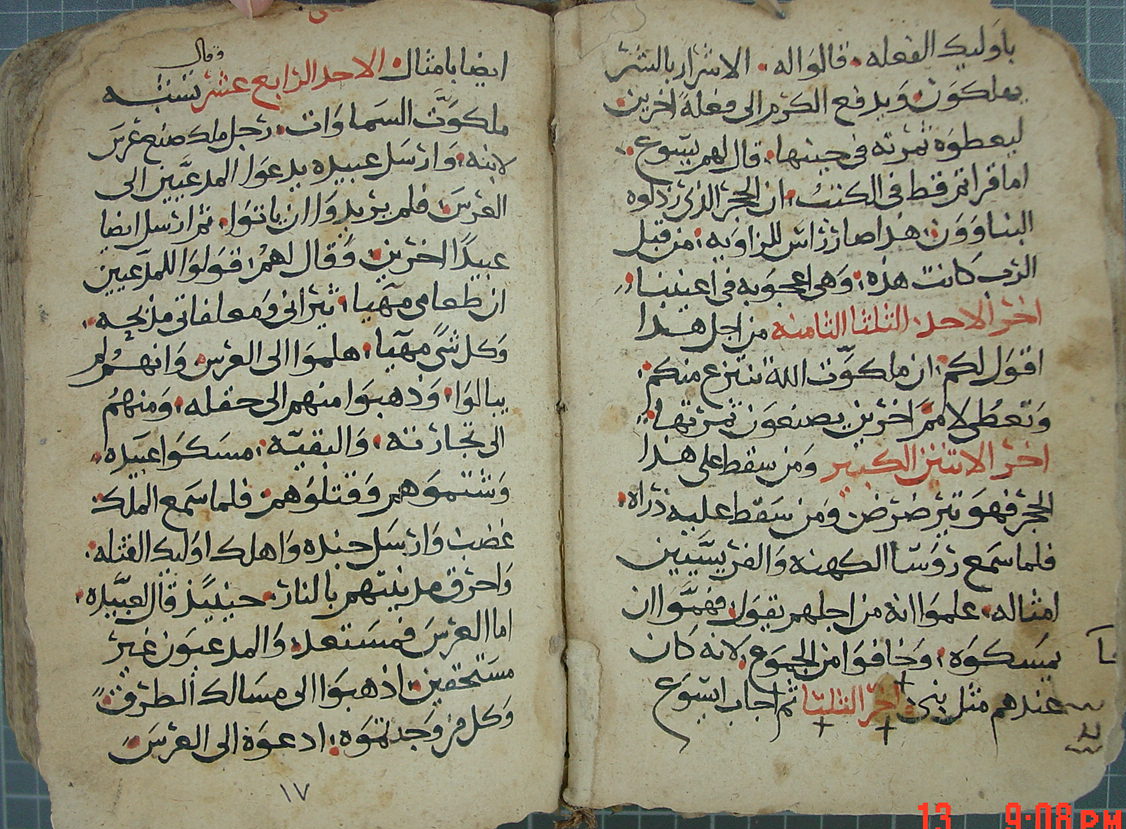 باوليك الفعله. قالوا له. الاشرار بالشر
يهلكون. ويدفع الكرم الى فعلة اخرين
ليعطوه ثمرته في حينها. قال لهم يسوع.
اما قراتم قط في الكتب. ان الحجر الذي رذلوه
البناوون. هذا صار راس للزاويه. من قبل
الرب كانت هذه. وهي اعجوبه في اعيننا.
اخر الاحد. الثلثا الثامنه من اجل هذا
اقول لكم. ان ملكوت الله تنتزع منكم.
وتعطى لامم اخرين يصنعون ثمرتها.
اخر الاتنين الكبير ومن سقط على هذا
الحجر فهو يترضرض ومن سقط عليه ذراه.
فلما سمع روسا الكهنه والفريسيين
امثاله. علموا انه من اجلهم يقول. فهموا ان
يمسكوه. وخافوا من الجموع لانه كان
عندهم مثل نبي. اخر الثلثا ثم اجاب ايسوع
وقال
ايضا بامثال. الاحد الرابع عشر تشبه
ملكوت السماوات. رجل ملك صنع عرس
لابنه. وارسل عبيده يدعوا المدعيين الى
العرس. فلم يريدوا ان ياتوا. ثم ارسل ايضا
عبيدا اخرين. وقال لهم. قولوا للمدعيين
ان طعامي مهيا. تيراني ومعلفاتي مذبحه.
وكل شي مهيا. هلموا الى العرس وانهم لم
يبالوا. وذهبوا منهم الى حقله. ومنهم
الى تجارته. والبقيه. مسكوا عبيده.
وشتموهم وقتلوهم. فلما سمع الملك
غضب وارسل جنده واهلك اوليك القتله.
واحرق مدينتهم بالنار. حينيذ قال لعبيده.
اما العرس فمستعد. والمدعوون غير
مستحقين. اذهبوا الى مسالك الطرق
وكل من وجدتموه. ادعوه الى العرس
١٧
13 9:08 PM